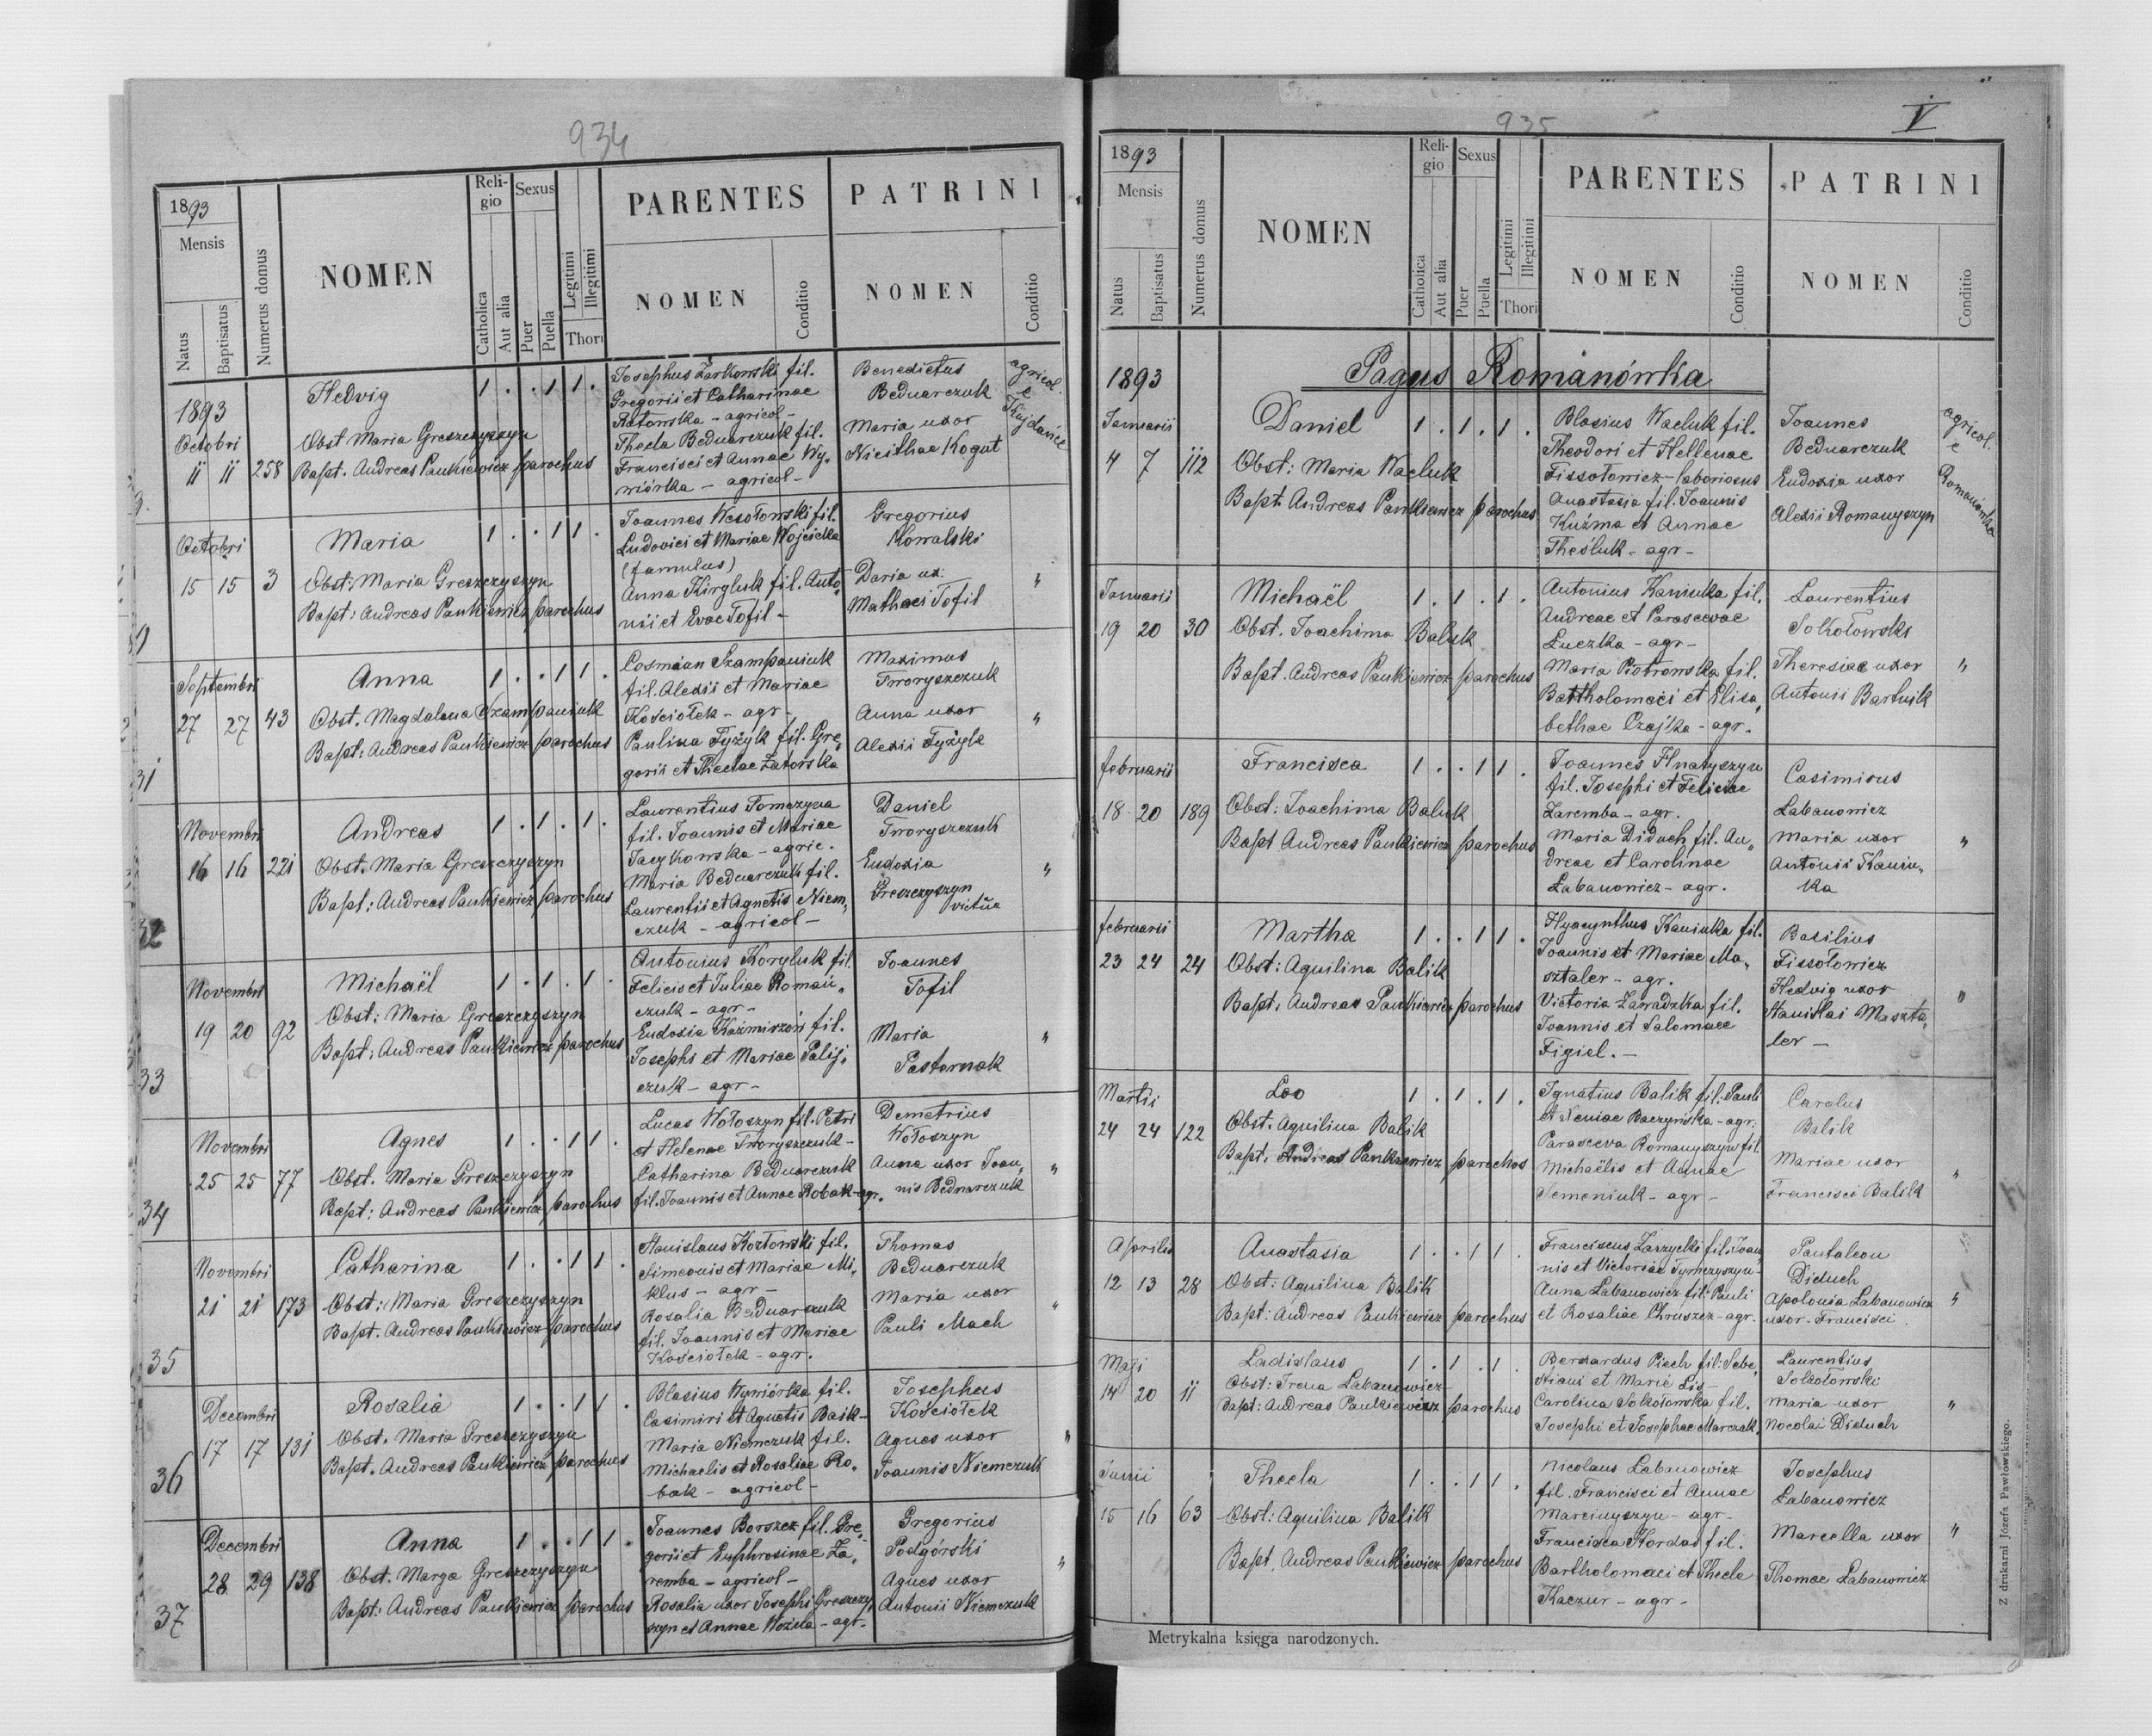 934
1893
Mensis
Natus
Baptisatus
Numerus domus
NOMEN
Reli-
gio
Catholica
Aut alia
Sexus
Puer
Puella
Legitimi
Illegitimi
Thori
PARENTES
NOMEN
Conditio
PATRINI
NOMEN
Conditio
1893
Octobri
11 11 258
Hedvig
Obst Maria Greszczyszyn
Bapt. Andreas Pankiewicz parochus
1 . . 1 1 .
Josephus Żarkowski fil.
Gregorii et Catharinae
Ratowska - agricol -
Thecla Bednarczuk fil.
Francisci et Annae Wy,
wiórka - agricol -
Benedictus
Bednarczuk
Maria uxor
Nicithae Kogut
agricol.
e
Kujdańce
Octobri
15 15 3
Maria
Obst: Maria Greszczyszyn
Bapt: Andreas Pankiewicz parochus
1 . . 1 1 .
Joannes Wesołowski fil.
Ludovici et Mariae Wojcicka
(famulus)
Anna Kiryluk fil. Anto,
nii et Evae Tofil -
Gregorius
Kowalski
Daria ux:
Mathaei Tofil
"
Septembri
27 27 43
Anna
Obst. Magdalena Szampaniuk
Bapt: Andreas Pankiewicz parochus
1 . . 1 1 .
Cosmian Szampaniuk
fil. Alexii et Mariae
Kościołek - agr -
Paulina Tyżyk fil. Gre,
gorii et Theclae Zatorska
Maximus
Tworyszczuk
Anna uxor
Alexii Tyżyk
"
31
Novembri
16 16 221
Andreas
Obst. Maria Greszczyszyn
Bapt: Andreas Pankiewicz parochus
1 . 1 . 1 .
Laurentius Tomczyna
fil. Joannis et Mariae
Jacykowska - agric.
Maria Bednarczuk fil.
Laurentii et Agnetis Niem,
czuk - agricol -
Daniel
Tworyszczuk
Eudoxia
Greszczyszyn
"
32
Novembri
19 20 92
Michaël
Obst: Maria Greszczyszyn
Bapt: Andreas Pankiewicz parochus
1 . 1 . 1 .
Antonius Koryluk fil.
Felicis et Juliae Romań,
czuk - agr -
Eudoxia Kaźmiszón fil.
Josephi et Mariae Palij,
czuk - agr -
Joannes
Tofil
Maria
Pasternak
"
33
Novembri
25 25 77
Agnes
Obst. Maria Greszczyszyn
Bapt: Andreas Pankiewicz parochus
1 . . 1 1 .
Lucas Wołoszyn fil. Petri
et Helenae Tworyszczuk -
Catharina Bednarczuk
fil. Joannis et Annae Robak - agr.
Demetrius
Wołoszyn
Anna uxor Joan,
nis Bednarczuk
"
34
Novembri
21 21 173
Catharina
Obst: Maria Greszczyszyn
Bapt. Andreas Pankiewicz parochus
1 . . 1 1 .
Stanislaus Kozłowski fil.
Simeonis et Mariae Mi,
klus - agr -
Rosalia Bednarczuk
fil. Joannis et Mariae
Kościołek - agr.
Thomas
Bednarczuk
Maria uxor
Pauli Mach
"
35
Decembri
17 17 131
Rosalia
Obst. Maria Greszczyszyn
Bapt. Andreas Pankiewicz parochus
1 . . 1 1 .
Blasius Wywiórka fil.
Casimiri et Agnetis Baik -
Maria Niemczuk fil.
Michaelis et Rosaliae Ro,
bak - agricol -
Josephus
Kościołek
Agnes uxor
Joannis Niemczuk
"
36
Decembri
28 29 138
Anna
Obst. Marya Greszczyszyn
Bapt: Andreas Pankiewicz parochus
1 . . 1 1 .
Joannes Borszcz fil. Gre,
gorii et Euphrosinae Za,
remba - agricol -
Rosalia uxor Josephi Greszczy,
szyn et Annae Woźna - agr -
Gregorius
Podgórski
Agnes uxor
Antonii Niemczuk
"
37
935
V
1893
Mensis
Natus
Baptisatus
Numerus domus
NOMEN
Reli-
gio
Catholica
Aut alia
Sexus
Puer
Puella
Legitimi
Illegitimi
Thori
PARENTES
NOMEN
Conditio
PATRINI
NOMEN
Conditio
1893
Pagus Romanówka
Januarii
4 7 112
Daniel
Obst: Maria Wacluk
Bapt. Andreas Pankiewicz parochus
1 . 1 . 1 .
Blasius Wacluk fil.
Theodori et Hellenae
Fissołowicz - laboriosus
Anastasia fil. Joannis
Kuźma et Annae
Theśluk - agr -
Joannes
Bednarczuk
Eudoxia uxor
Alexii Romanyszyn
agricol.
e
Romanówka
Januarii
19 20 30
Michaël
Obst. Joachima Baluk
Bapt. Andreas Pankiewicz parochus
1 . 1 . 1 .
Antonius Kaniuka fil.
Andreae et Parascevae
Łuczka - agr -
Maria Piotrowska fil.
Bartholomaei et Elisa,
bethae Czajka - agr.
Laurentius
Sokołowski
Theresiae uxor
Antonii Bartnik
"
februarii
18 20 189
Francisca
Obst: Joachima Baluk
Bapt Andreas Pankiewicz parochus
1 . . 1 1 .
Joannes Hnatyszyn
fil. Josephi et Feliciae
Zaremba - agr.
Maria Diduch fil. An,
dreae et Carolinae
Labanowicz - agr.
Casimirus
Labanowicz
Maria uxor
Antonii Kaniu,
ka
"
februarii
23 24 24
Martha
Obst: Aquilina Balik
Bapt: Andreas Pankiewicz parochus
1 . . 1 1 .
Hyacynthus Kaniuka fil.
Joannis et Mariae Ma,
sztaler - agr.
Victoria Zawadzka fil.
Joannis et Salomaee
Figiel. -
Basilius
Fissołowicz
Hedvig uxor
Stanislai Maszta,
ler -
"
Martii
24 24 122
Leo
Obst. Aquilina Balik
Bapt. Andreas Pankiewicz parochus
1 . 1 . 1 .
Ignatius Balik fil. Pauli
et Xeniae Baczyńska - agr.
Parasceva Romanyszyn fil.
Michaëlis et Annae
Semeniuk - agr -
Carolus
Balik
Mariae uxor
Francisci Balik
"
Aprilis
12 13 28
Anastasia
Obst: Aquilina Balik
Bapt: Andreas Pankiewicz parochus
1 . . 1 1 .
Franciscus Zarzycki fil. Joan,
nis et Victoriae Tymczyszyn -
Anna Labanowicz fil. Pauli
et Rosaliae Chruszcz - agr.
Pantaleon
Diduch
Apolonia Labanowicz
uxor - Francisci
"
Maji
14 20 11
Ladislaus
Obst: Irena Labanowicz
Bapt: Andreas Pankiewicz parochus
1 . 1 . 1 .
Bernardus Piech fil: Seba,
stiani et Marie Lis -
Carolina Sokołowska fil.
Josephi et Josephae Marczak.
Laurentius
Sokołowski
Maria uxor
Nocolai Diduch
"
Junii
15 16 63
Thecla
Obst: Aquilina Balik
Bapt. Andreas Pankiewicz parochus
1 . . 1 1 .
Nicolaus Labanowicz
fil. Francisci et Annae
Marcinyszyn - agr -
Francisca Hordas fil.
Bartholomaei et Thecle
Kaczur - agr -
Josephus
Labanowicz
Marcella uxor
Thomae Labanowicz
"
Metrykalna księga narodzonych.
Z drukarni Józefa Pawłowskiego.